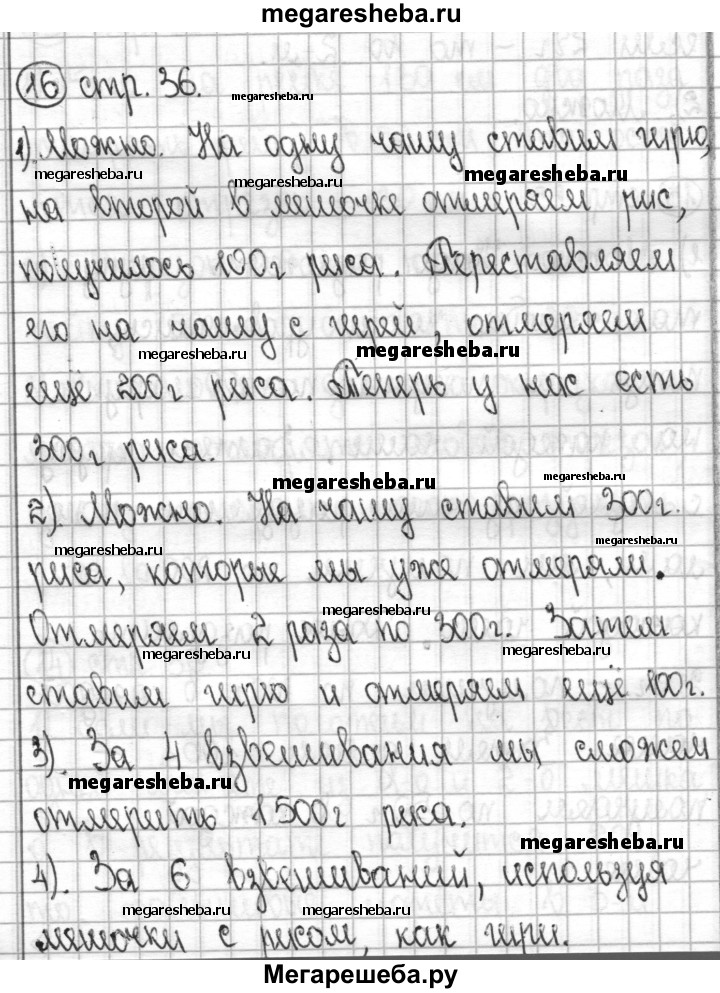 megaresheba.ru
16 стр. 36.
megaresheba.ru
1). Можно. На одну чашу ставим гирю,
megaresheba.ru megaresheba.ru megaresheba.ru
на второй в мешочке отмеряем рис,
получилось 100г риса. Переставляем
его на чашу с гирей, отмеряем
megaresheba.ru megaresheba.ru
ещё 200г риса. Теперь у нас есть
300г риса.
megaresheba.ru megaresheba.ru
2). Можно. На чашу ставим 300г.
megaresheba.ru megaresheba.ru
риса, которые мы уже отмеряли.
megaresheba.ru
Отмеряем 2 раза по 300г. Затем
megaresheba.ru megaresheba.ru
ставим гирю и отмеряем ещё 100г.
3). За 4 взвешивания мы сможем
megaresheba.ru
отмерить 1500г риса.
megaresheba.ru
4). За 6 взвешиваний, используя
megaresheba.ru megaresheba.ru
мешочки с рисом, как гири.
Мегарешеба.ру